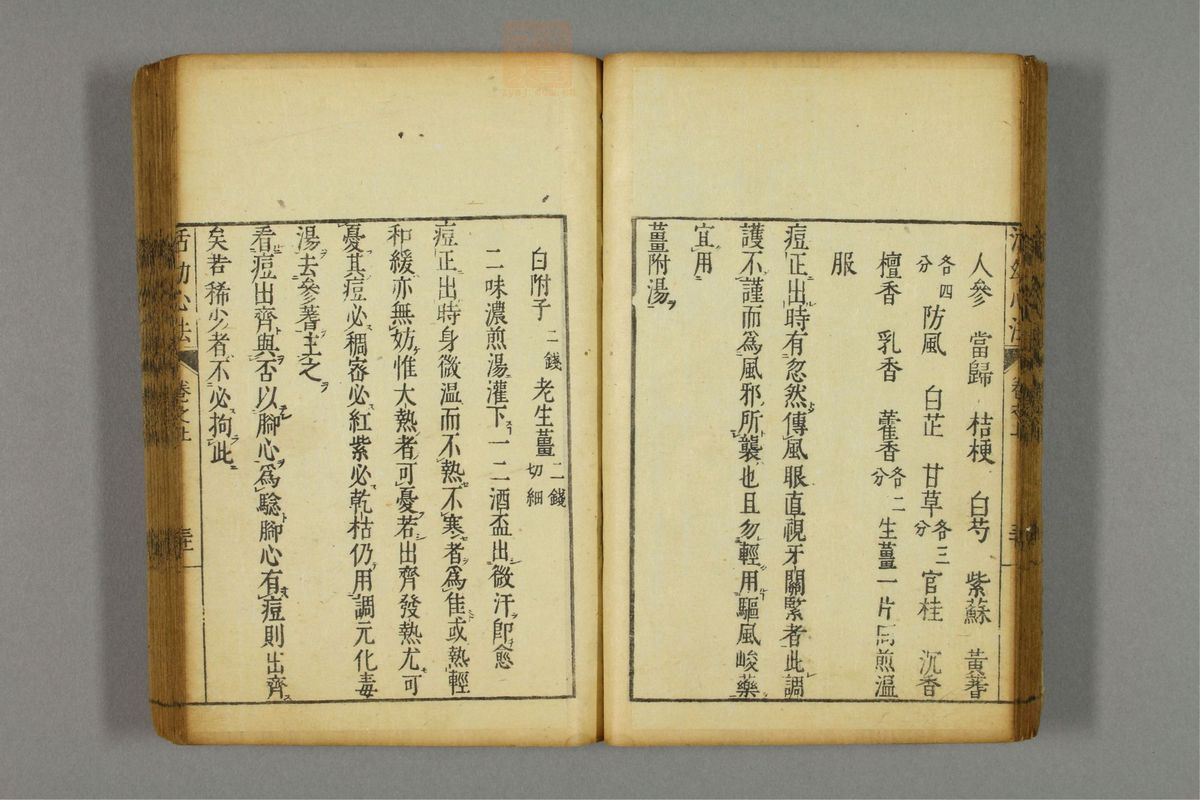 人參 當歸 桔梗 白芍 紫蘇 黃蓍
各四分 防風 白芷 甘草各三分 官桂 沉香
檀香 乳香 藿香各二分 生薑一片同煎溫
服
痘正出時有忽然傳風眼直視牙關緊者此調
護不謹而為風邪所襲也且勿輕用驅風峻藥
宜用
薑附湯
白附子二錢 老生薑二錢切細
二味濃煎湯灌下一二酒盃出微汗即愈
痘正出時身微溫而不熱不寒者為佳或熱輕
和緩亦無妨惟大熱者可憂若出齊發熱尤可
憂其痘必稠密必紅紫必乾枯仍用調元化毒
湯去參蓍主之
看痘出齊與否以腳心為驗腳心有痘則出齊
矣若稀少者不必拘此
活幼心法 卷之上